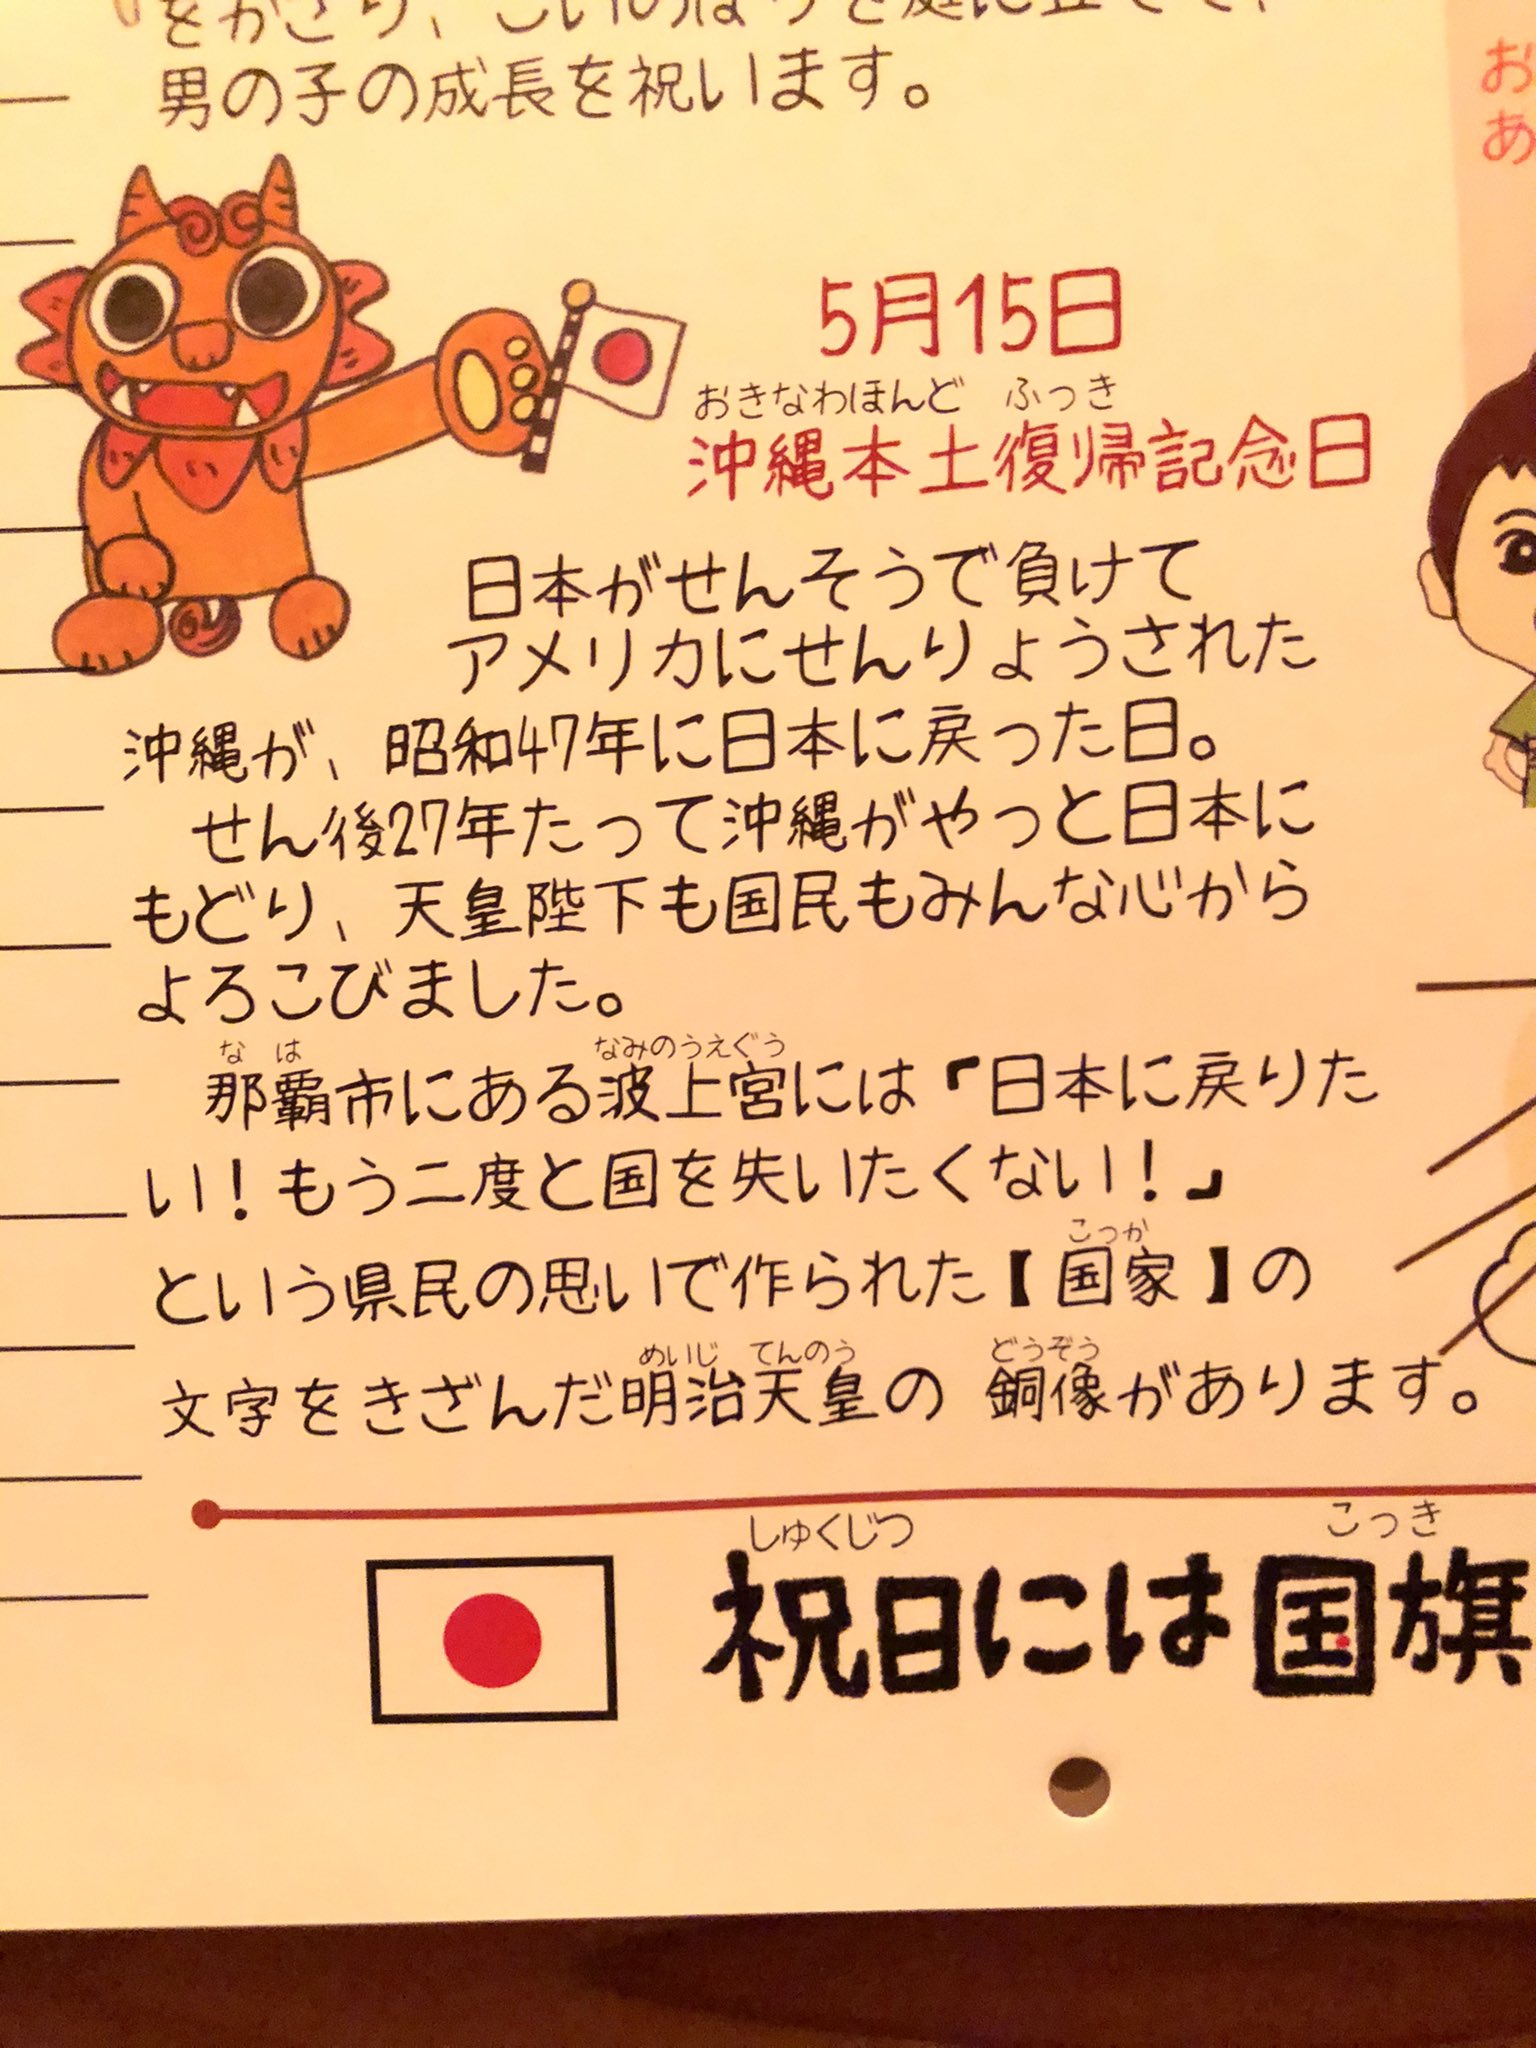 をかざり、こいのぼりを庭に立てて、
男の子の成長を祝います。
お
あ
5月15日
おきなわほんど ふっき
沖縄本土復帰記念日
日本がせんそうで負けて
アメリカにせんりょうされた
沖縄が、昭和47年に日本に戻った日。
せん後27年たって沖縄がやっと日本に
もどり、天皇陛下も国民もみんな心から
よろこびました。
な は なみのうえぐう
那覇市にある波上宮には「日本に戻りた
い！もう二度と国を失いたくない！」
こっか
という県民の思いで作られた【国家】の
めいじ てんのう どうぞう
文字をきざんだ明治天皇の 銅像があります。
しゅくじつ こっき
祝日には国旗